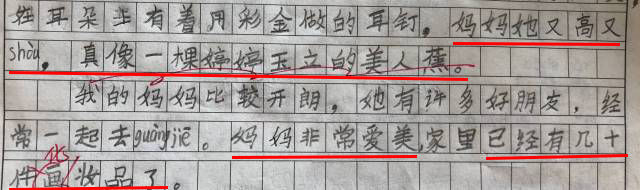 在耳朵上有着用彩金做的耳钉。妈妈她又高又
shòu，真像一棵婷婷玉立的美人蕉。
我的妈妈比较开朗，她有许多好朋友，经
常一起去guàngjiē。妈妈非常爱美，家里已经有几十
件画化妆品了。